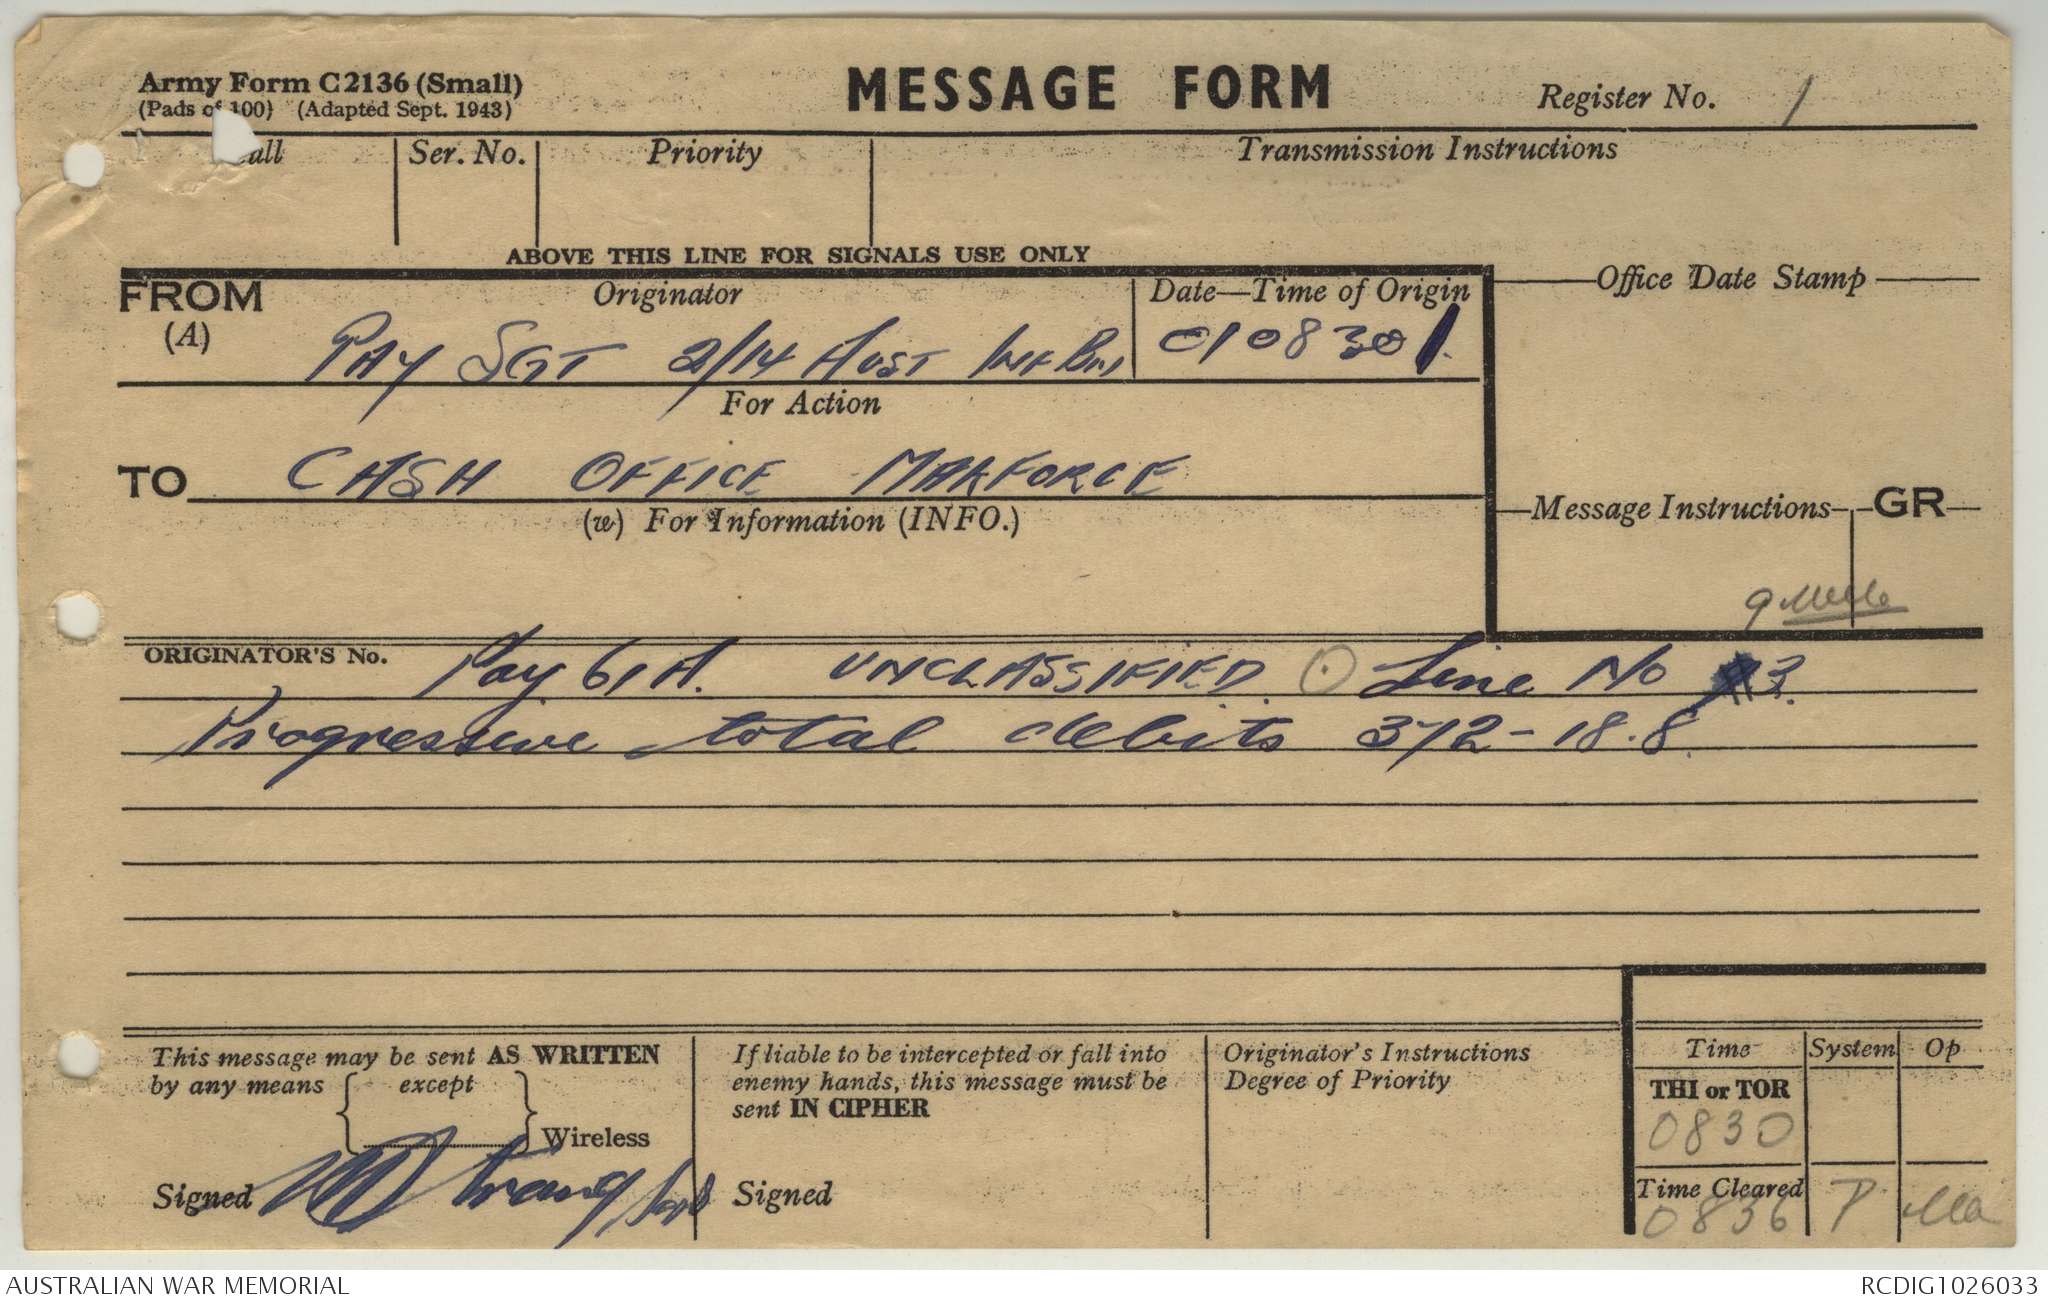 Army Form C2136 (Small)
(Pads of 100) (Adapted Sept. 1943)
MESSAGE FORM
Register No. 1
Call Ser. No. Priority Transmission Instructions
ABOVE THIS LINE FOR SIGNALS USE ONLY
FROM (A) Originator
PAY SGT 2/14 AUST INF BN
Date—Time of Origin
010830
Office Date Stamp
For Action
TO CASH OFFICE MAKFORCE
(w) For Information (INFO.)
Message Instructions GR
ORIGINATOR'S No. Pay 61A. UNCLASSIFIED. Line No 3.
Progressive total debits 372-18.8.
This message may be sent AS WRITTEN
by any means except
Wireless
Signed
If liable to be intercepted or fall into
enemy hands, this message must be
sent IN CIPHER
Signed
Originator's Instructions
Degree of Priority
Time System Op
THI or TOR
0830
Time Cleared
0836 P
AUSTRALIAN WAR MEMORIAL
RCDIG1026033